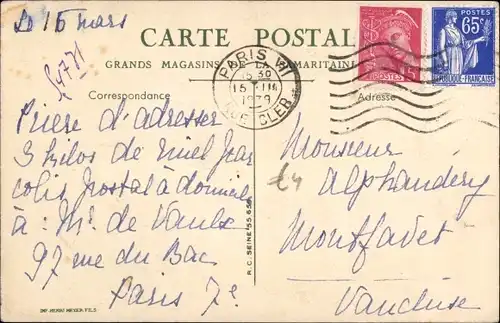 15 mars
CARTE POSTAL
GRANDS MAGASINS DE LA SAMARITAINE
Correspondance
Adresse
PARIS VII
15 30
15
RUE CLER
POSTES
POSTES
65c
REPUBLIQUE FRANÇAISE
Prière d'adresser
3 kilos de miel par
colis postal à domicile
à: Mr. de Vaulx
97 rue du Bac
Paris 7e
Monsieur
Alphandéry
Montfavet
Vaucluse
R.C. SEINE 55.656
IMP. HENRI MEYER FILS